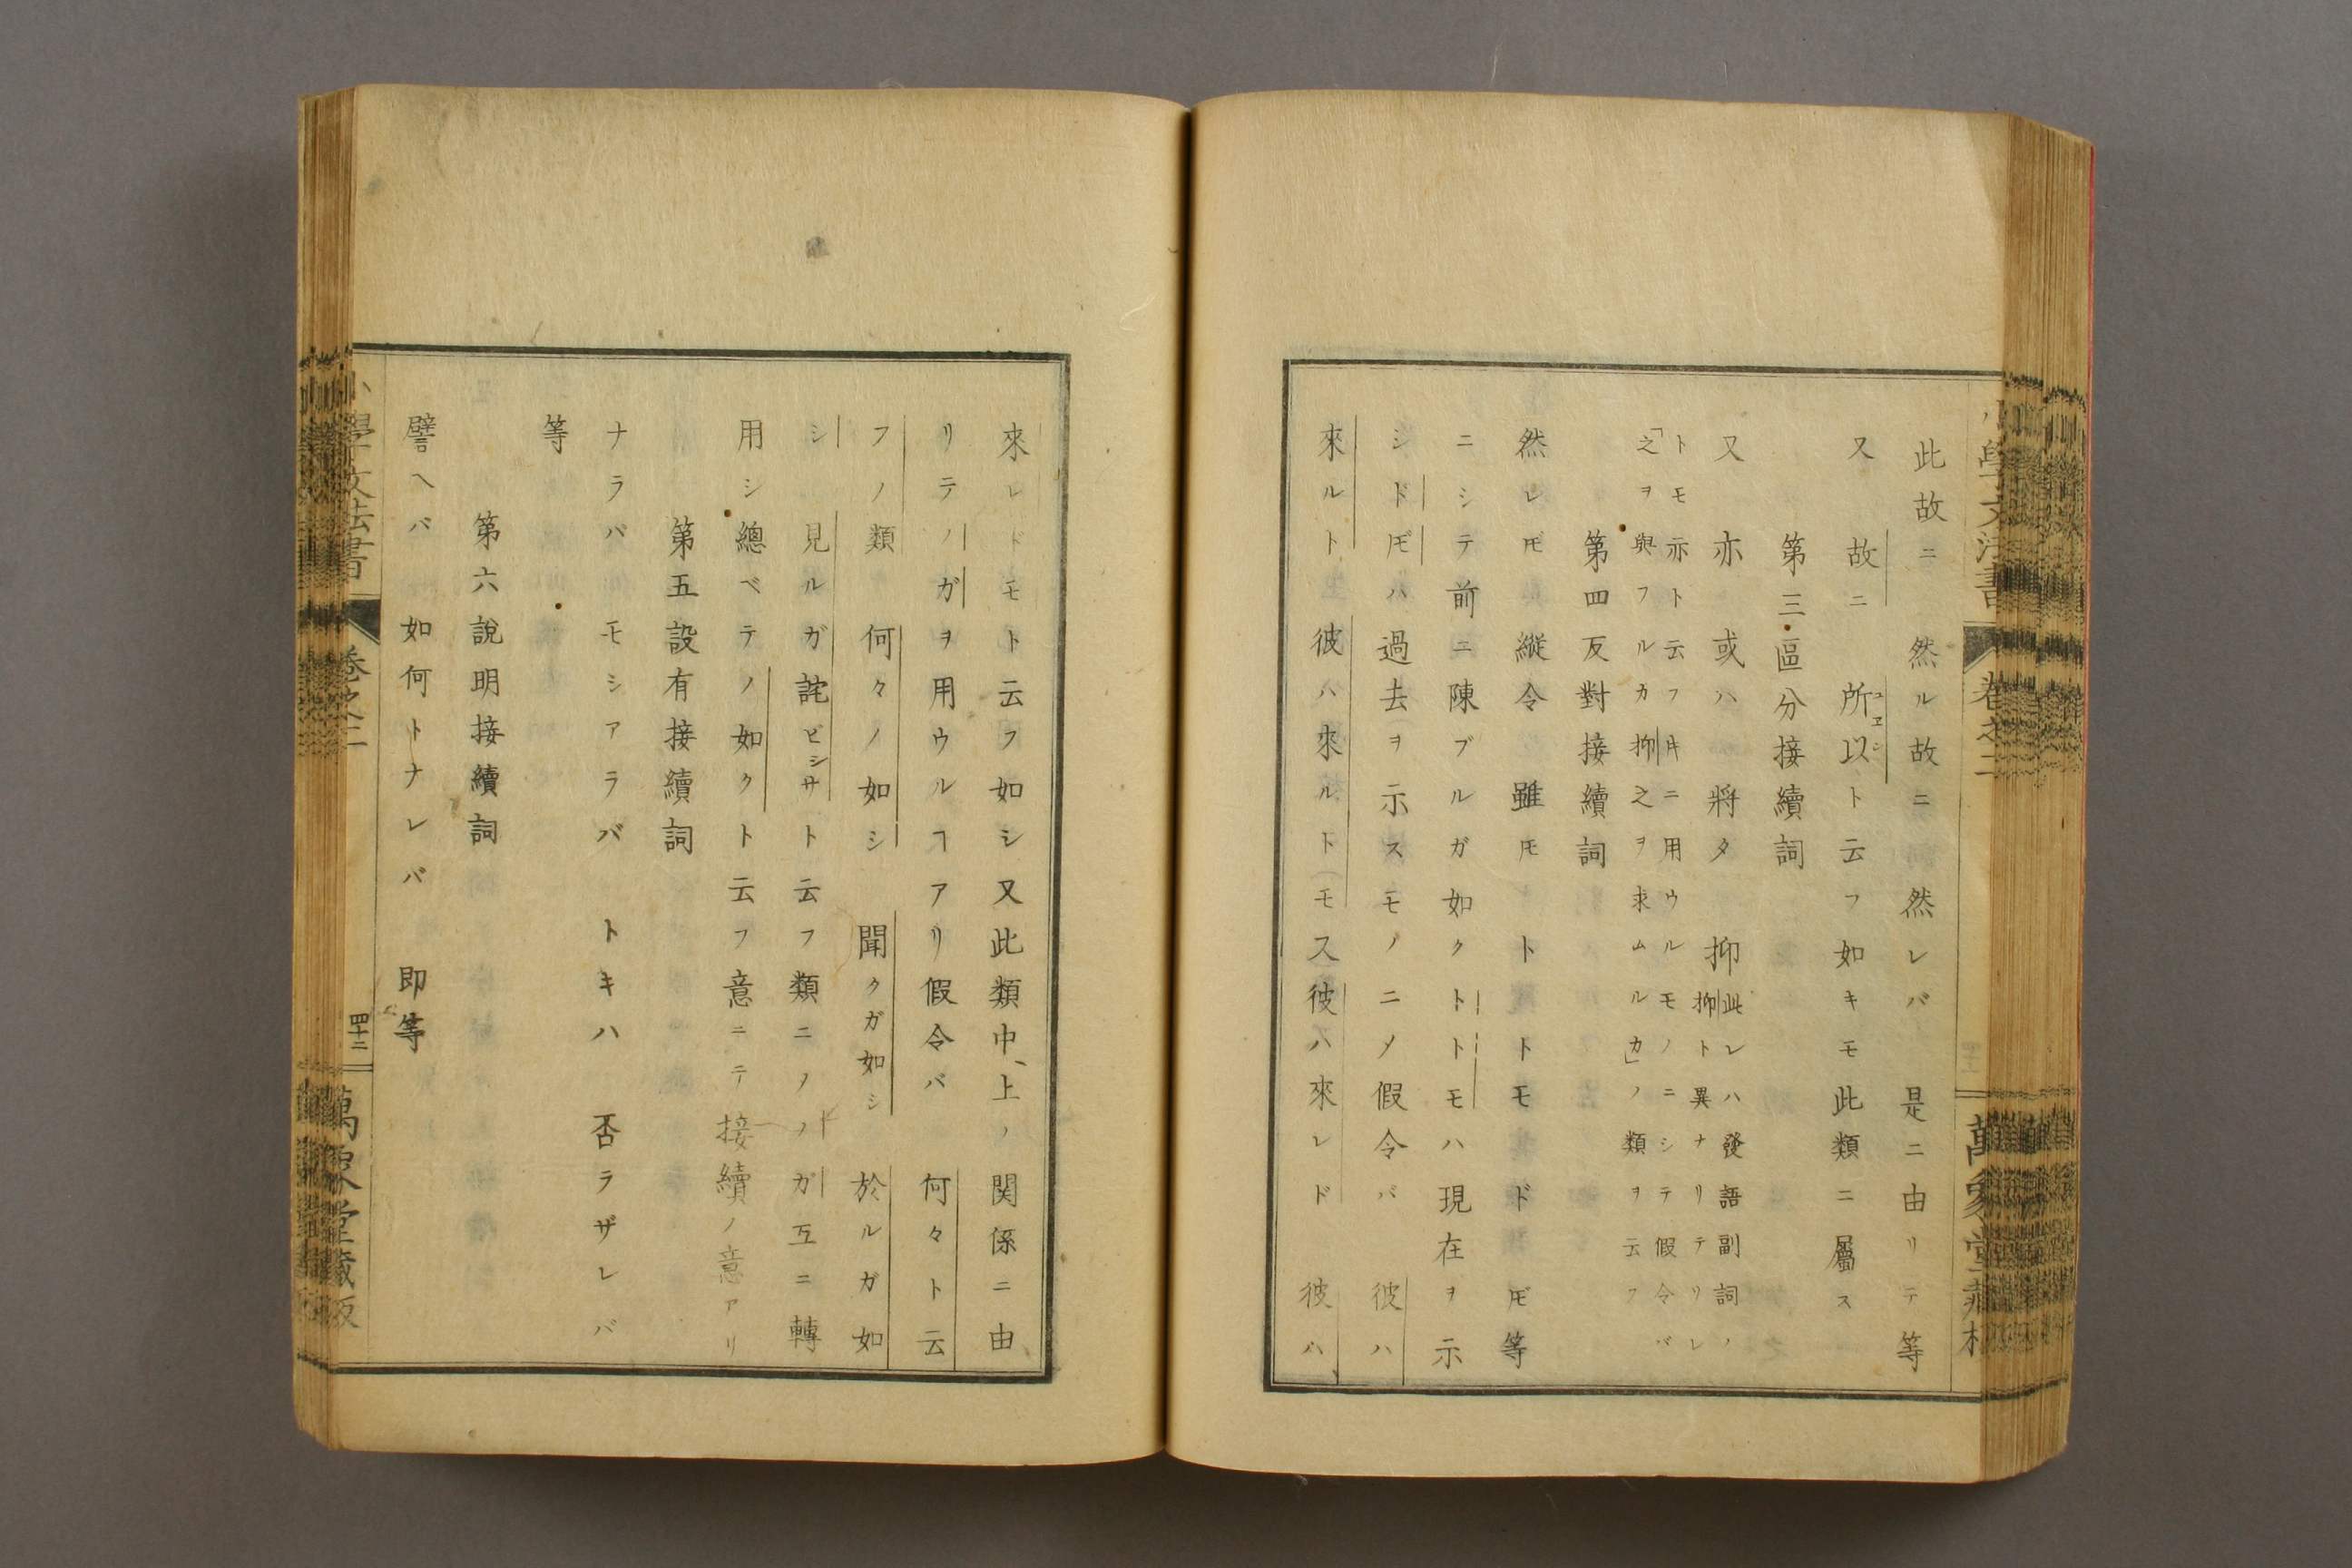 此故ニ　然ル故ニ　然レバ　是ニ由リテ等
又　故ニ　所以ト云フ如キモ此類ニ屬ス
ユヱン
第三區分接續詞
又　亦　或ハ　將タ　抑
此レハ發語副詞ノ
抑ト異ナリテリレ
トモ亦ト云フ𪜈ニ用ウルモノニシテ假令バ
「之ヲ與フルカ抑之ヲ求ムルカ」ノ類ヲ云フ
第四反對接續詞
然レ𪜈　縱令　雖𪜈　ト　トモ　ド　ド𪜈等
ニシテ前ニ陳ブルガ如クト　トモハ現在ヲ示
シド𪜈ハ過去ヲ示スモノニメ假令バ　彼ハ
來ルト　彼ハ來ルトモ又彼ハ來レド　彼ハ
小學文法書　卷之二
來レドモト云フ如シ又此類中、上ノ関係ニ由
リテノガヲ用ウルヿアリ假令バ　何々ト云
フノ類　何々ノ如シ　聞クガ如シ　於ルガ如
シ　見ルガ詫ビシサト云フ類ニノノガ互ニ轉
用シ總ベテノ如クト云フ意ニテ接續ノ意アリ
第五設有接續詞
ナラバ　モシアラバ　トキハ　否ラザレバ
等
第六說明接續詞
譬ヘバ　如何トナレバ　即等
小學文法書　卷之二　四十二　萬象堂藏版